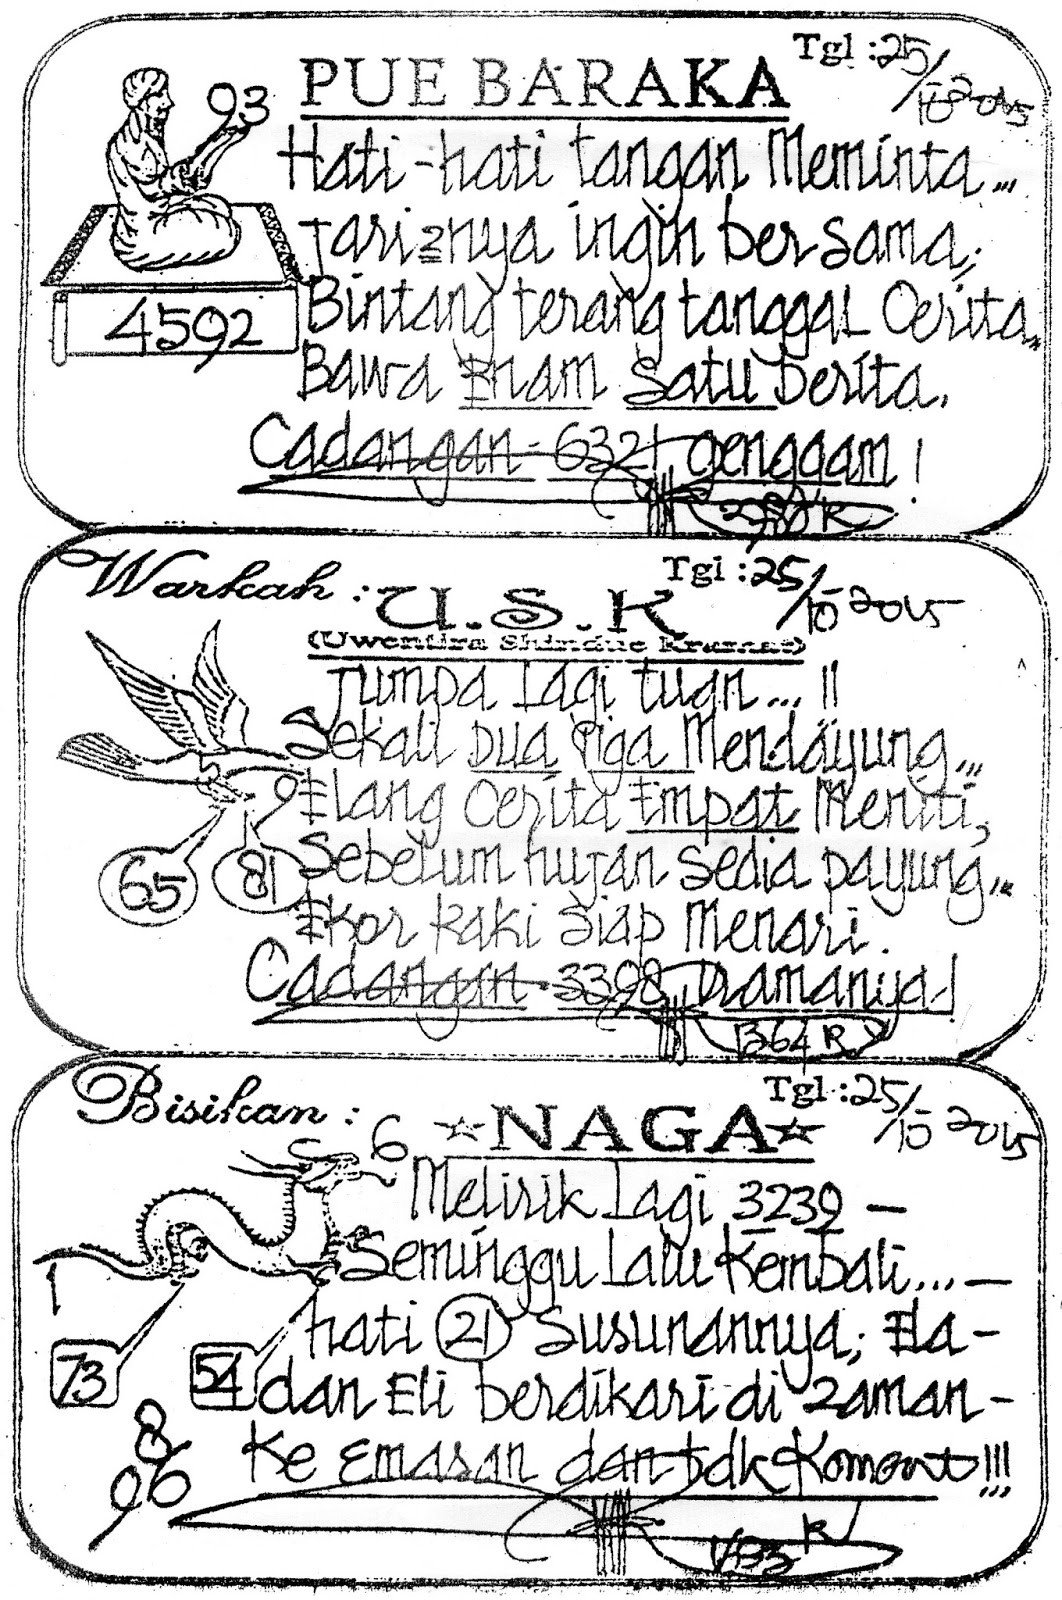 Tgl : 25/10 2015
PUE BARAKA
93
Hati-hati tangan Meminta...
Tari2nya ingin bersama;
4592
Bintang terang tanggal Cerita..
Bawa Enam Satu berita.
Cadangan - 6321 genggam !
Warkah : U.S.K
Tgl : 25/10 2015
(Uwentira Shindue Kramat)
Jumpa Lagi tuan... !!
Sekali Dua Tiga Mendayung...
9
Elang Cerita Empat Meniti,
65 81
Sebelum hujan Sedia payung..
Ekor kaki Siap Menari.
Cadangan - 3398 Namanya!
1364 R
Bisikan : NAGA
Tgl : 25/10 2015
6
Melirik Lagi 3239 -
Seminggu Lalu Kembali... -
1
hati 21 Susunannya; Ela -
73 54
dan Eli berdikari di zaman -
8
Ke Emasan dan tdk Koment !!!
96